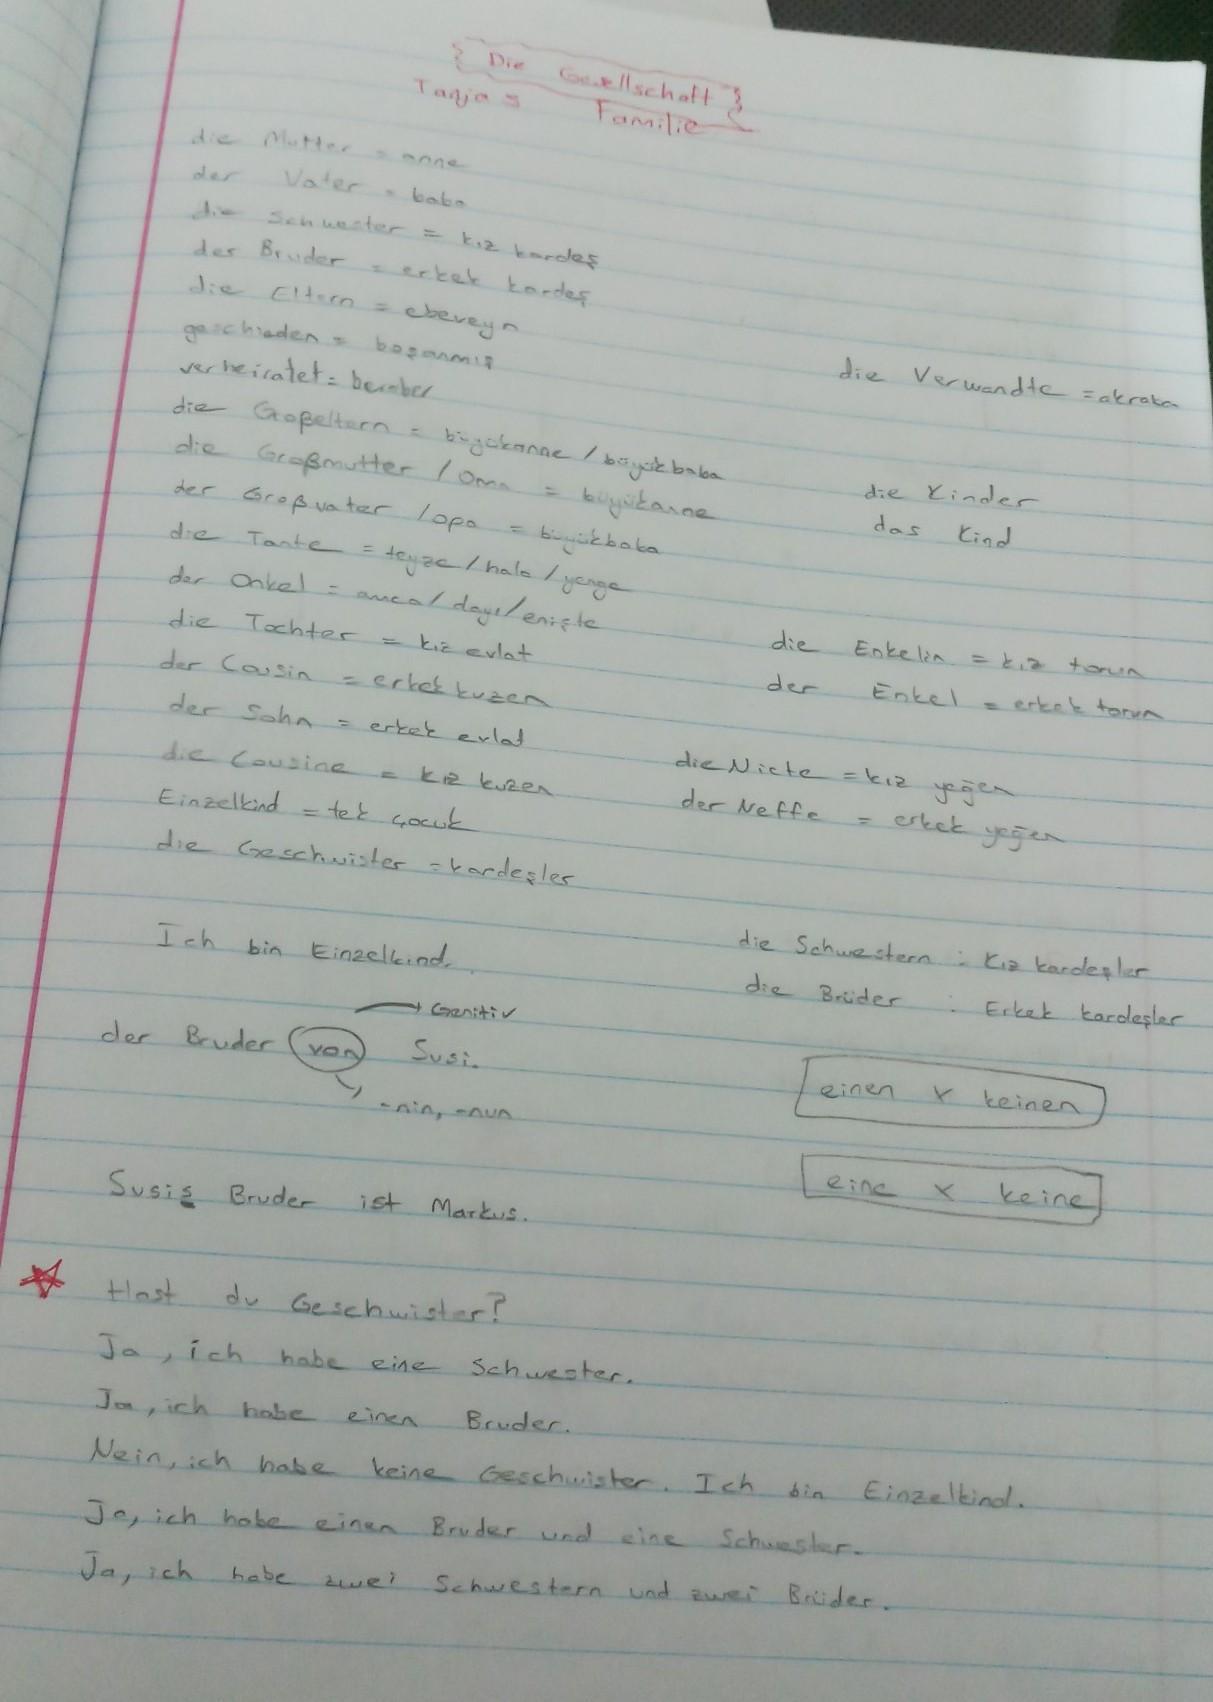 Die Gesellschaft
Tanjas Familie
die Mutter = anne
der Vater = baba
die Schwester = kız kardeş
der Bruder = erkek kardeş
die Eltern = ebeveyn
geschieden = boşanmış
verheiratet = beraber
die Großeltern = büyükanne / büyükbaba
die Großmutter / Oma = büyükanne
der Großvater / opa = büyükbaba
die Tante = teyze / hala / yenge
der Onkel = amca / dayı / enişte
die Tochter = kız evlat
der Cousin = erkek kuzen
der Sohn = erkek evlat
die Cousine = kız kuzen
Einzelkind = tek çocuk
die Geschwister = kardeşler
die Verwandte = akraba
die Kinder
das Kind
die Enkelin = kız torun
der Enkel = erkek torun
die Nicte = kız yeğen
der Neffe = erkek yeğen
Ich bin Einzelkind.
die Schwestern : kız kardeşler
die Brüder : Erkek kardeşler
→ Genitiv
der Bruder von Susi.
-nin, -nun
einen x keinen
Susis Bruder ist Markus.
eine x keine
Hast du Geschwister?
Ja, ich habe eine Schwester.
Ja, ich habe einen Bruder.
Nein, ich habe keine Geschwister. Ich bin Einzelkind.
Ja, ich habe einen Bruder und eine Schwester.
Ja, ich habe zwei Schwestern und zwei Brüder.